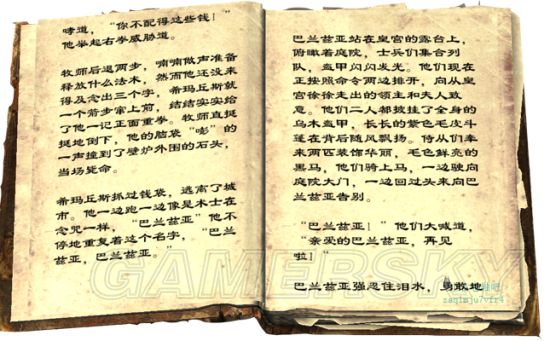 哮道，“你不配得这些钱！”
他举起右拳威胁道。
牧师后退两步，喃喃做声准备
释放什么法术，然而他还没来
得及念出三个字，希玛丘斯就
一个箭步冢上前，结结实实给
了他一记正面重拳。牧师直挺
挺地倒下，他的脑袋“嘭”的
一声撞到了壁炉外围的石头，
当场毙命。
希玛丘斯抓过钱袋，逃离了城
市。他一边跑一边像是术士在
念咒一样，“巴兰兹亚”他不
停地重复着这个名字，“巴兰
兹亚，巴兰兹亚。”
巴兰兹亚站在皇宫的露台上，
俯瞰着庭院，士兵们集合列
队，盔甲闪闪发光。他们现在
正按照命令两边排开，向从皇
宫徐徐走出的领主和夫人致
意。他们二人都披挂了全身的
乌木盔甲，长长的紫色毛皮斗
篷在背后随风飘扬。侍从们牵
来两匹装饰华丽，毛色鲜亮的
黑马，他们骑上马，一边驶向
庭院大门，一边回过头来向巴
兰兹亚告别。
“巴兰兹亚！”他们大喊道，
“亲爱的巴兰兹亚，再见
啦！”
巴兰兹亚强忍住泪水，勇敢地
GAMERSKY
zaq1mju7vfr4